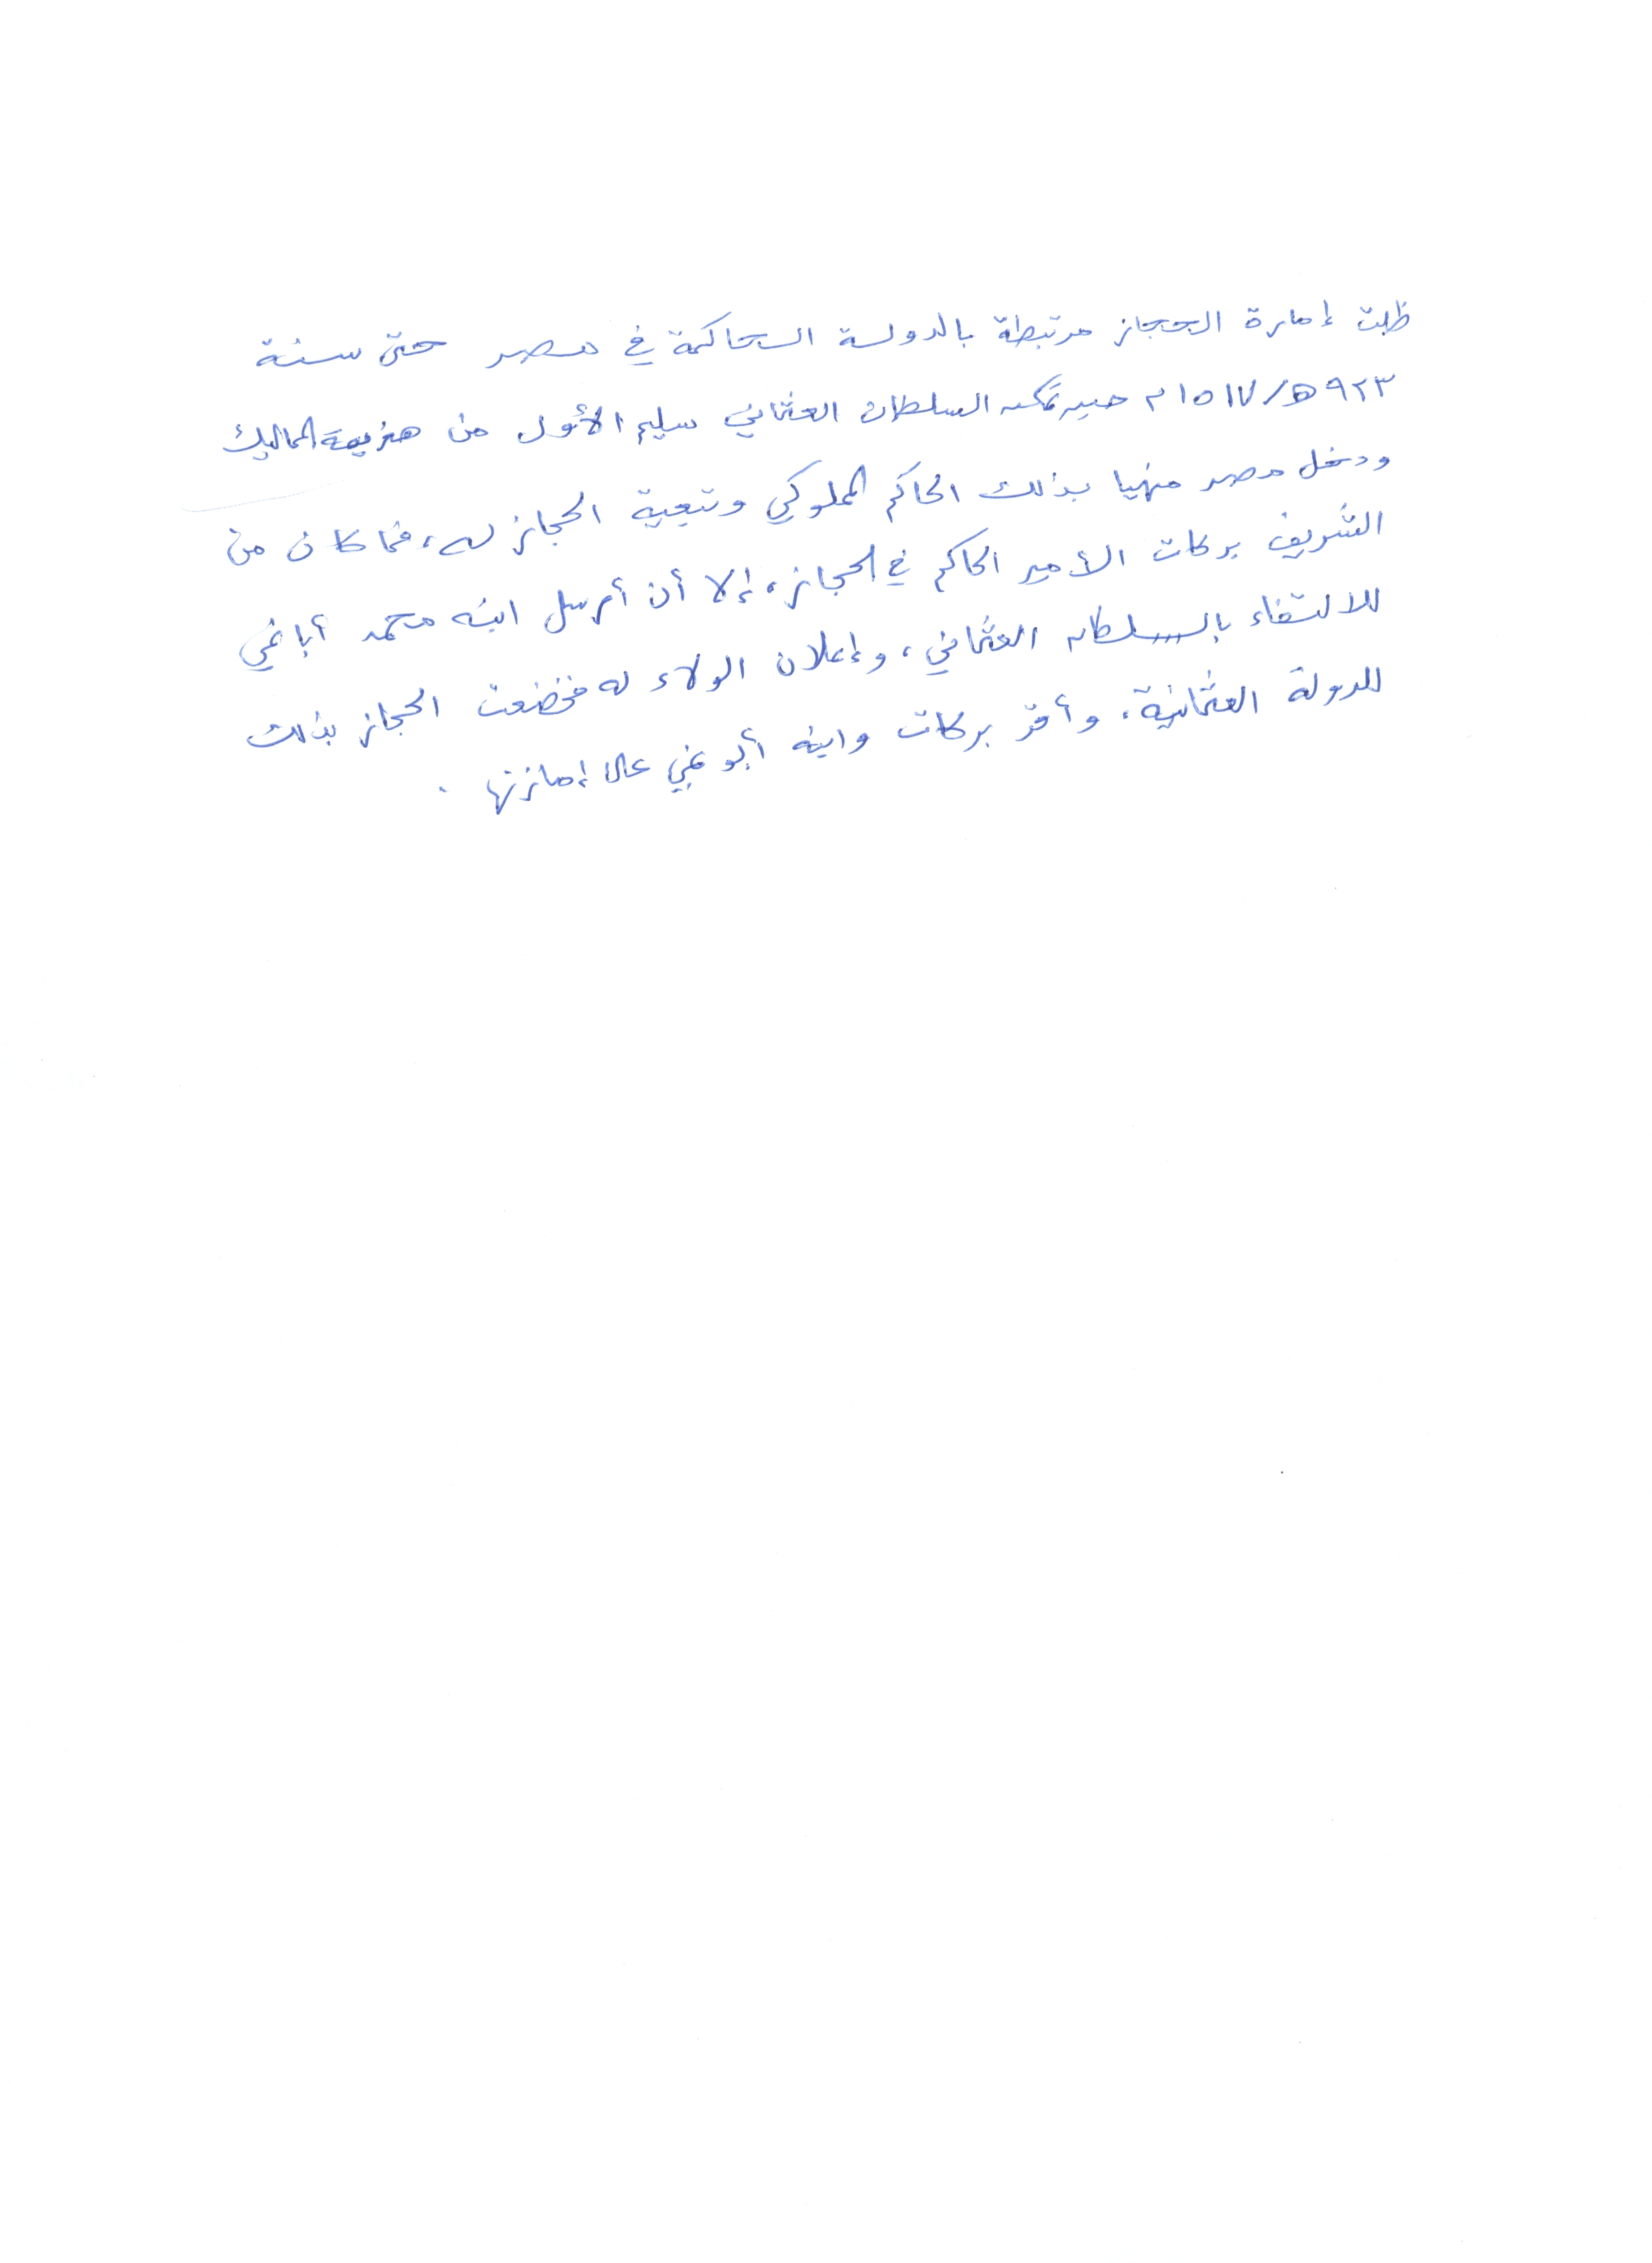 ظلت إمارة الحجاز مرتبطة بالدولة الحاكمة في مصر حتى سنة
٩٢٣هـ/١٥١٧م حين تمكن السلطان العثماني سليم الأول من هزيمة المماليك
ودخل مصر منهيا بذلك الحاكم المملوكي وتبعية الحجاز له، فما كان من
الشريف بركات الأمير الحاكم في الحجاز، إلا أن أرسل ابنه محمد أبا نمي
للالتقاء بالسلطان العثماني، وإعلان الولاء له فخضعت الحجاز بذلك
للدولة العثمانية، وأقر بركات وابنه أبو نمي على إمارتها.